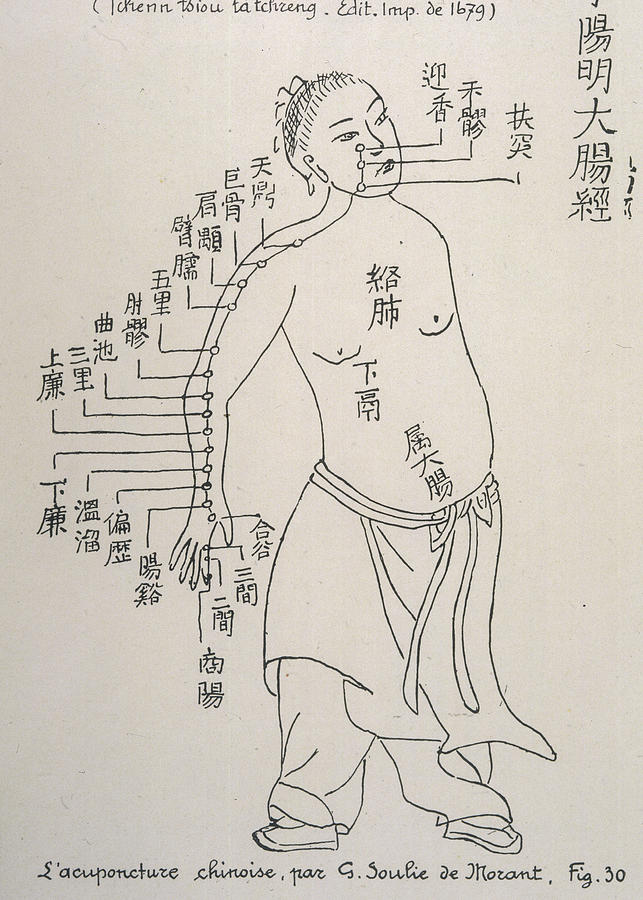 (Tchenn tsiou ta tchreng. Edit. Imp. de 1679)
陽明大腸經
迎香
禾髎
扶突
天鼎
巨骨
肩顒
臂臑
五里
肘髎
曲池
三里
上廉
下廉
溫溜
偏歷
陽谿
合谷
三間
二間
商陽
絡肺
下鬲
属大腸
L'acuponcture chinoise, par G. Soulie de Morant, Fig. 30